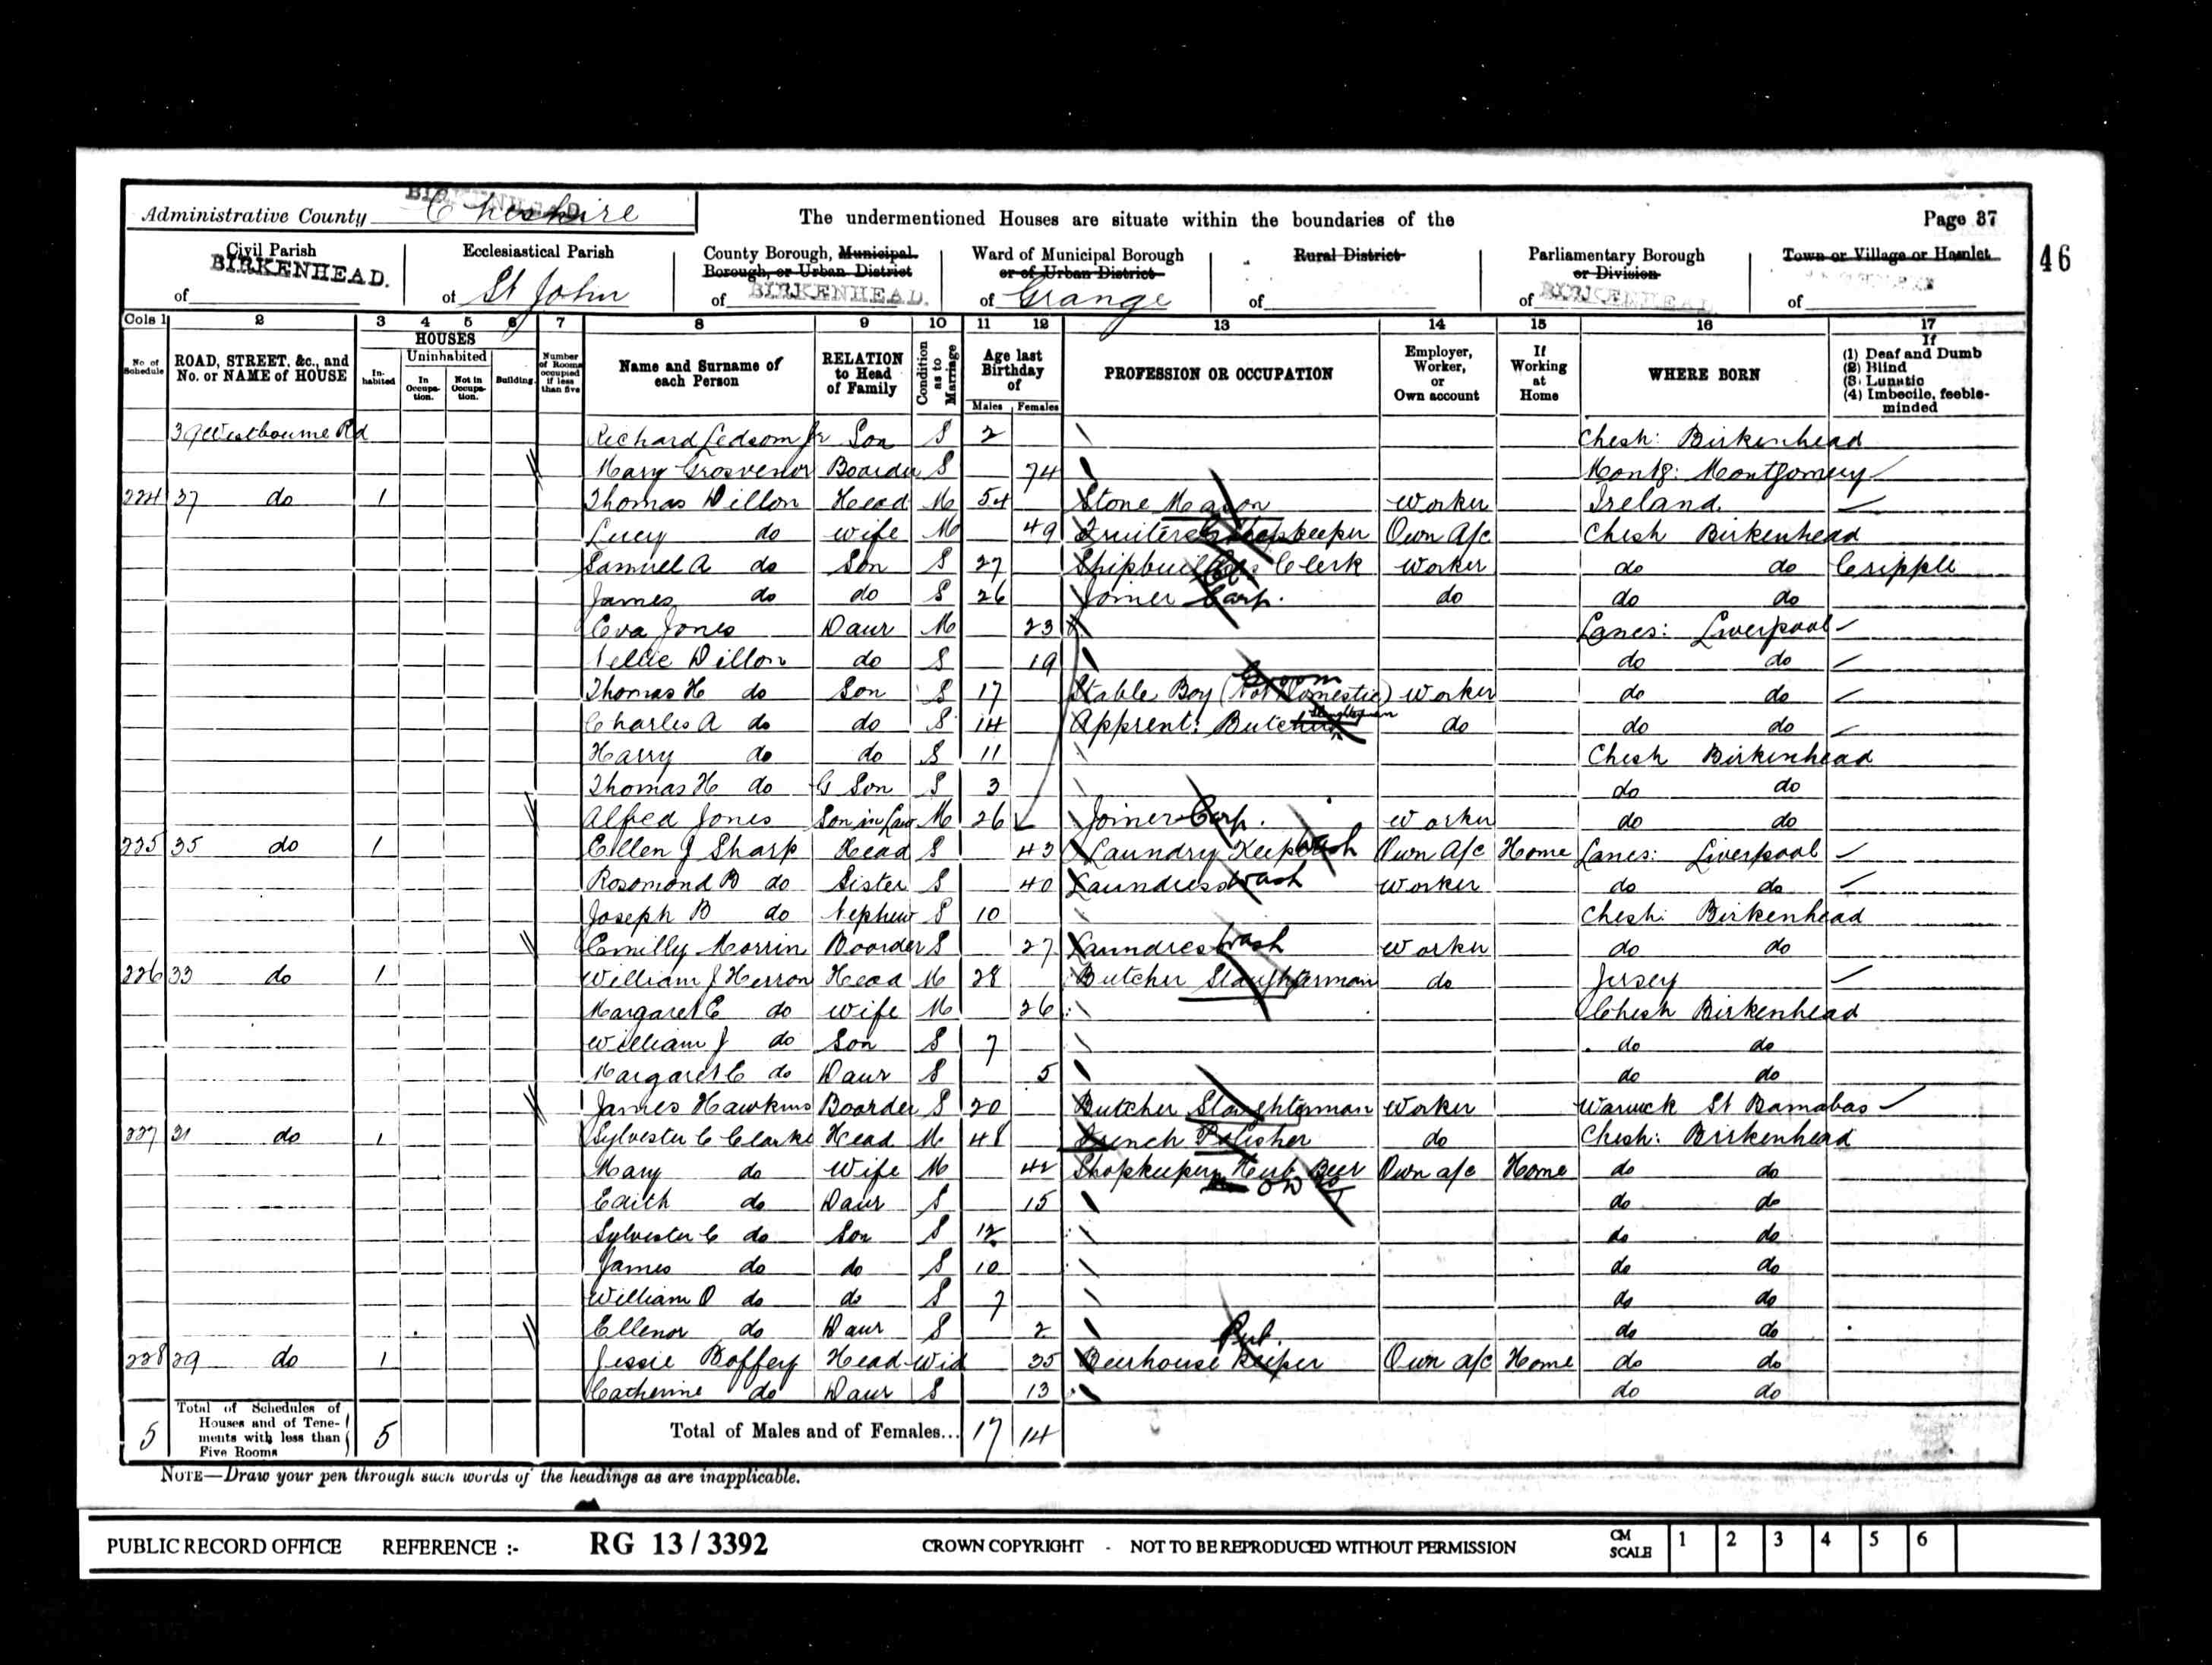 Administrative County Cheshire BIRKENHEAD
The undermentioned Houses are situate within the boundaries of the
Page 37
46
Civil Parish of BIRKENHEAD.
Ecclesiastical Parish of St John
County Borough, Municipal Borough, or Urban District of BIRKENHEAD.
Ward of Municipal Borough or of Urban District of Grange
Rural District of
Parliamentary Borough or Division of BIRKENHEAD
Town or Village or Hamlet of
Cols 1 2 3 4 5 6 7 8 9 10 11 12 13 14 15 16 17
No. of Schedule
ROAD, STREET, &c., and No. or NAME of HOUSE
HOUSES
Inhabited
Uninhabited
In Occupation.
Not in Occupation.
Building.
Number of Rooms occupied if less than five
Name and Surname of each Person
RELATION to Head of Family
Condition as to Marriage
Age last Birthday of
Males Females
PROFESSION OR OCCUPATION
Employer, Worker, or Own account
If Working at Home
WHERE BORN
If
(1) Deaf and Dumb
(2) Blind
(3) Lunatic
(4) Imbecile, feeble-minded
39 Westbourne Rd Richard Ledsom Jr Son S 2 Chesh: Birkenhead
Mary Grosvenor Boarder S 74 Montg: Montgomery
224 37 do 1 Thomas Dillon Head M 54 Stone Mason Worker Ireland.
Lucy do Wife M 49 Fruiterer Shopkeeper Own A/c Chesh Birkenhead
Samuel A do Son S 27 Shipbuilders Clerk Worker do do Cripple
James do do S 26 Joiner Carp. do do do
Eva Jones Daur M 23 Lancs: Liverpool
Nellie Dillon do S 19 do do
Groom
Thomas H do Son S 17 Stable Boy (Not Domestic) Worker do do
Charles A do do S 14 Apprent: Butcher Slaughterman do do do
Harry do do S 11 Chesh Birkenhead
Thomas H do G Son S 3 do do
Alfred Jones Son in Law M 26 Joiner Carp. Worker do do
225 35 do 1 Ellen J Sharp Head S 43 Laundry Keeper Wash Own A/c Home Lancs: Liverpool
Rosomond B do Sister S 40 Laundress Wash Worker do do
Joseph B do Nephew S 10 Chesh: Birkenhead
Emilly Morrin Boarder S 27 Laundress Wash Worker do do
226 33 do 1 William J Herron Head M 28 Butcher Slaughterman do Jersey
Margaret E do Wife M 26 Chesh Birkenhead
William J do Son S 7 do do
Margaret E do Daur S 5 do do
James Hawkins Boarder S 20 Butcher Slaughterman Worker Warwick St Barnabas
227 31 do 1 Sylvester C Clarke Head M 48 French Polisher do Chesh: Birkenhead
Mary do Wife M 42 Shopkeeper Herb Beer Own a/c Home do do
Edith do Daur S 15 do do
Sylvester C do Son S 12 do do
James do do S 10 do do
William O do do S 7 do do
Ellenor do Daur S 2 do do
Pub.
228 29 do 1 Jessie Boffey Head Wid 35 Beerhouse Keeper Own a/c Home do do
Catherine do Daur S 13 do do
5 Total of Schedules of Houses and of Tenements with less than Five Rooms 5 Total of Males and of Females... 17 14
NOTE—Draw your pen through such words of the headings as are inapplicable.
PUBLIC RECORD OFFICE REFERENCE :- RG 13 / 3392 CROWN COPYRIGHT - NOT TO BE REPRODUCED WITHOUT PERMISSION CM SCALE 1 2 3 4 5 6